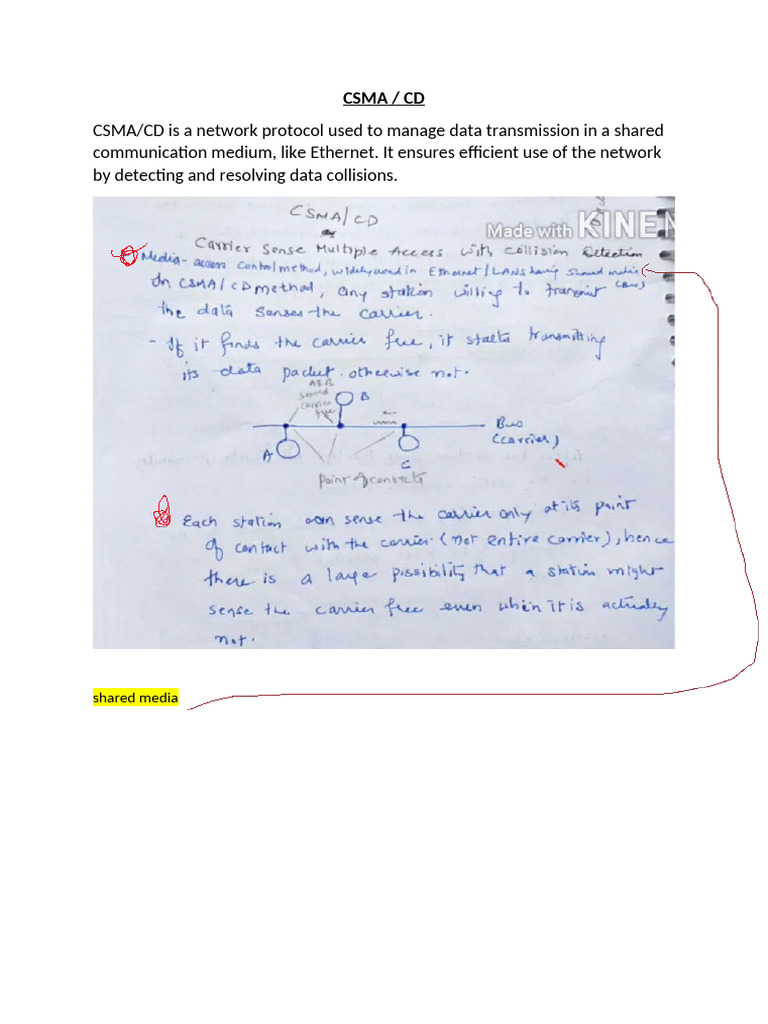 CSMA / CD
CSMA/CD is a network protocol used to manage data transmission in a shared
communication medium, like Ethernet. It ensures efficient use of the network
by detecting and resolving data collisions.
CSMA/CD
Made with KINEM
Carrier Sense Multiple Access with Collision Detection
Media-access control method, widely used in Ethernet/LANs having shared media
(Bus)
In CSMA/CD method, any station willing to transmit
the data senses the carrier.
- If it finds the carrier free, it starts transmitting
its data packet. otherwise not.
A & B
sensed
carrier
free
B
Bus
(carrier)
A
C
Point of contacts
Each station can sense the carrier only at its point
of contact with the carrier (not entire carrier), hence
there is a large possibility that a station might
sense the carrier free even when it is actually
not.
shared media